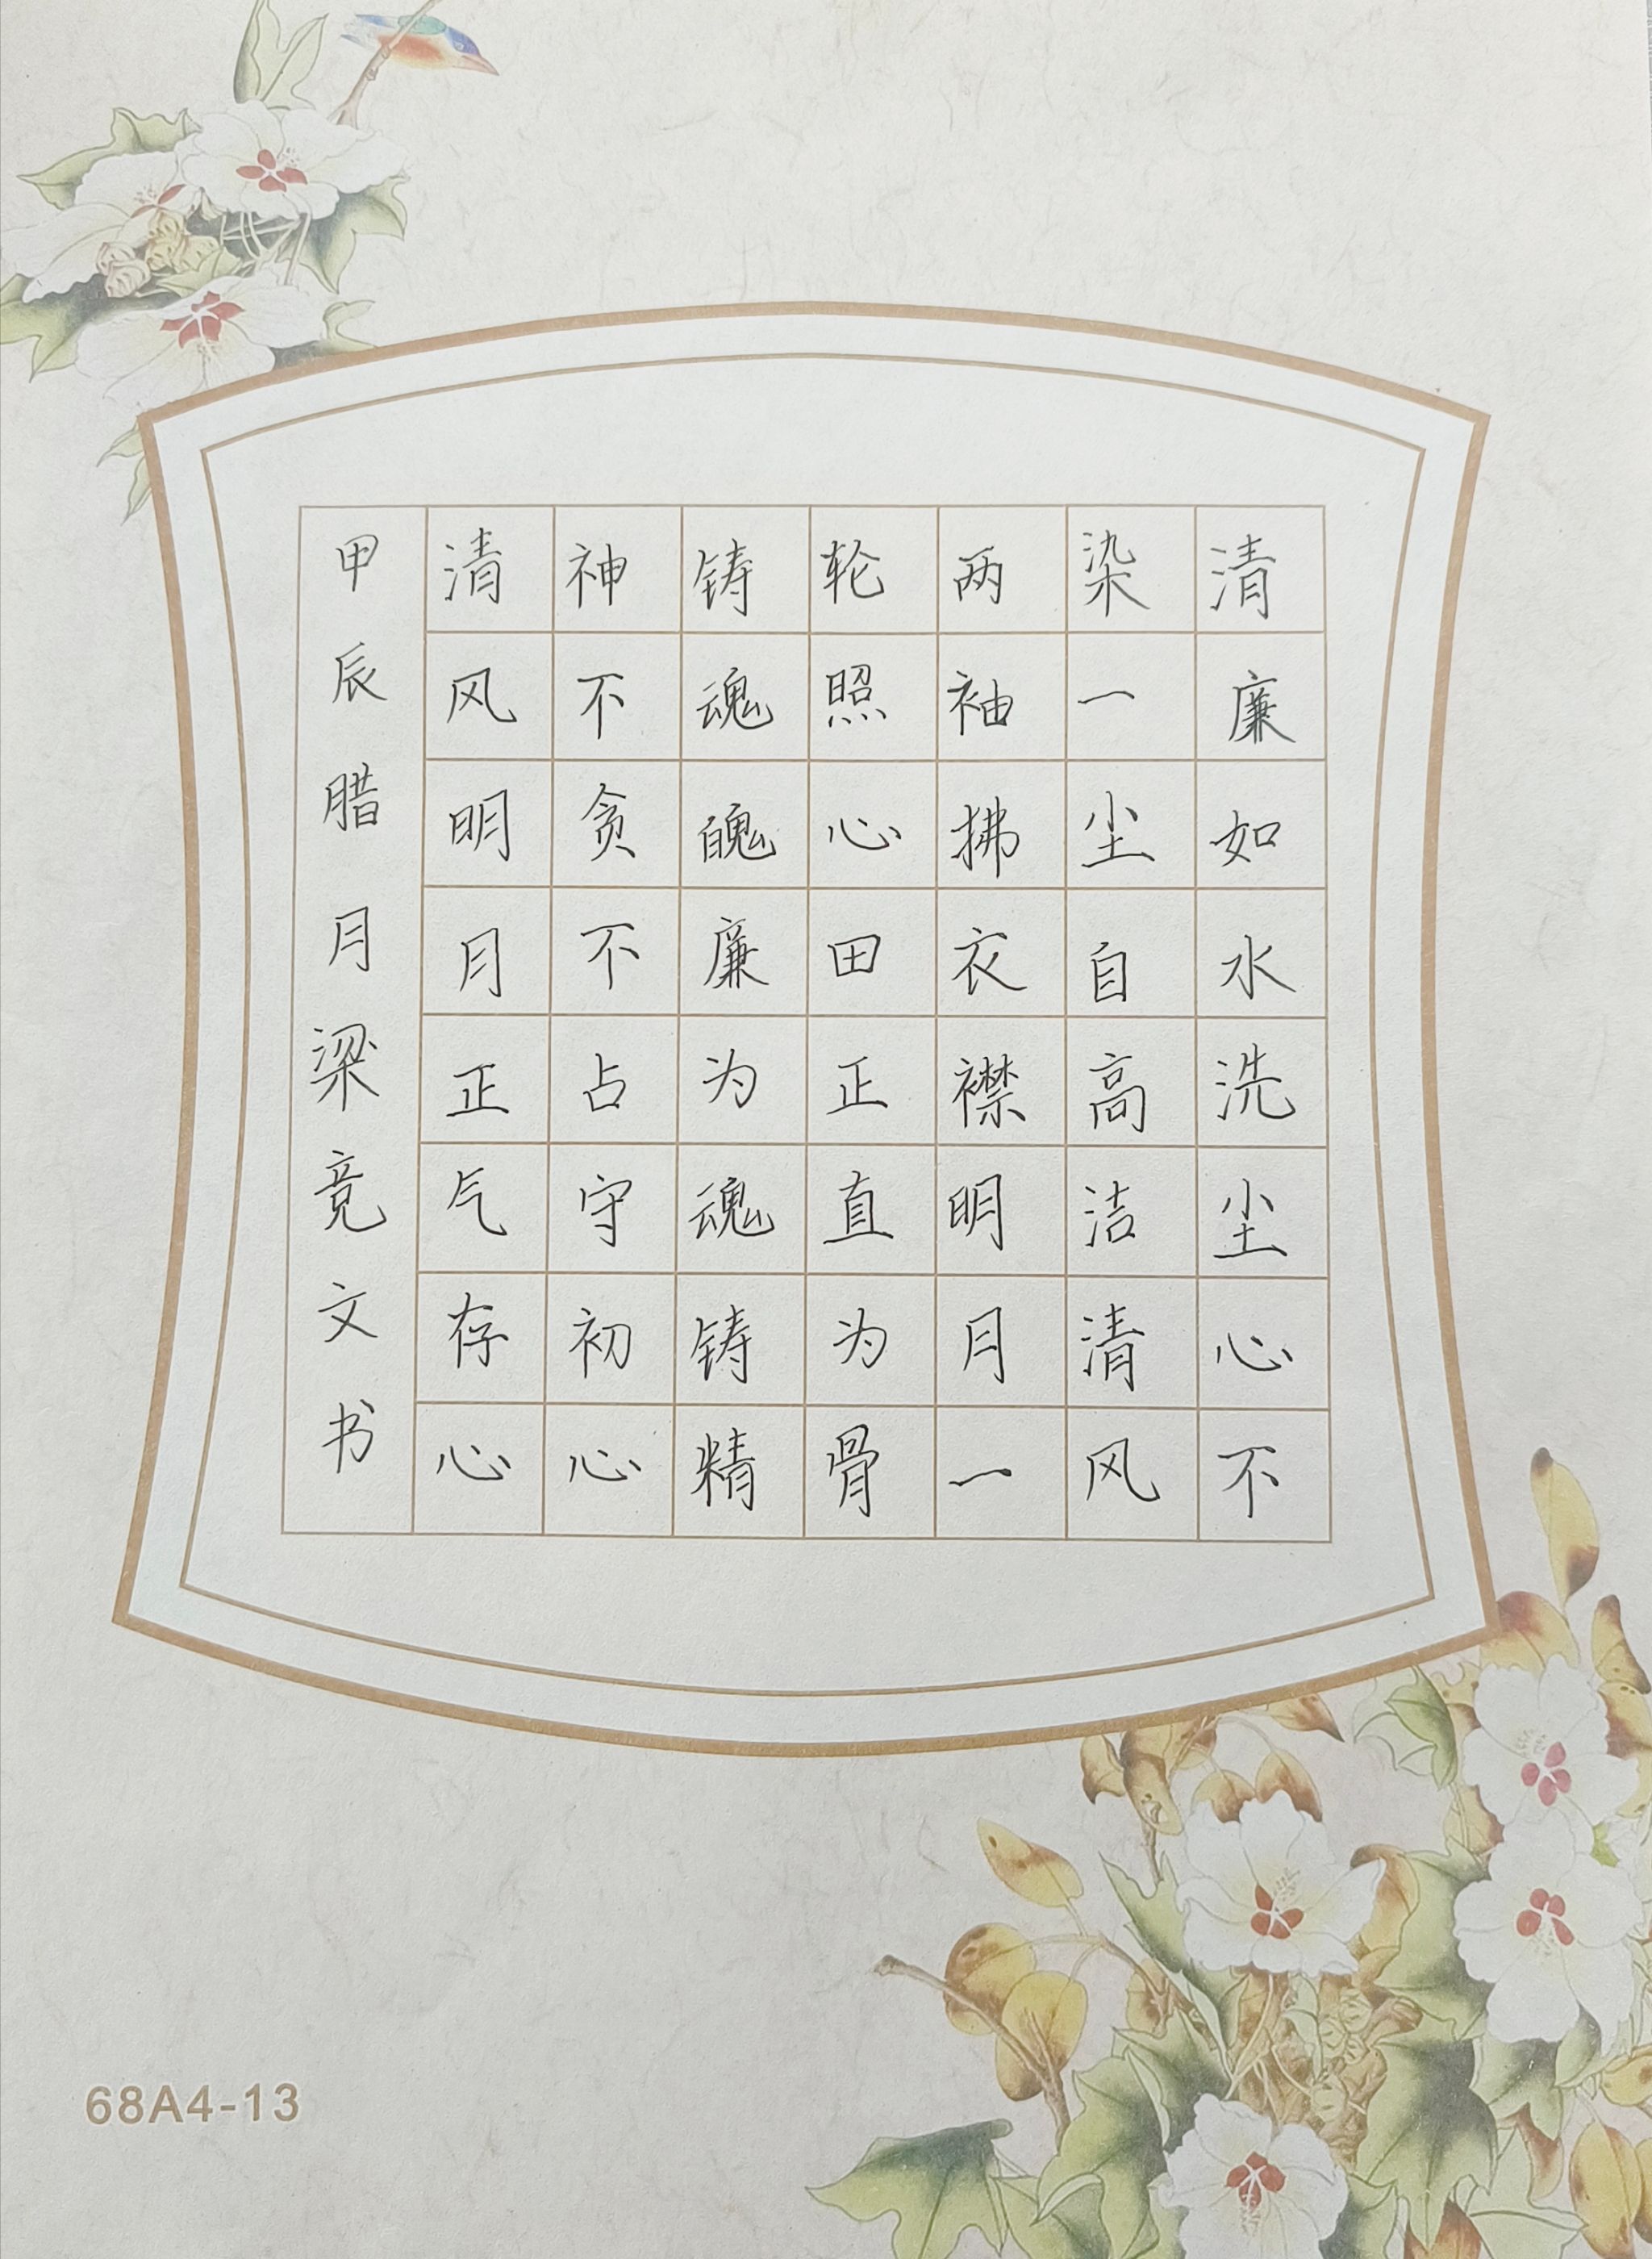 清廉如水洗尘心不
染一尘自高洁清风
两袖拂衣襟明月一
轮照心田正直为骨
铸魂魄廉为魂铸精
神不贪不占守初心
清风明月正气存心
甲辰腊月梁竞文书
68A4-13